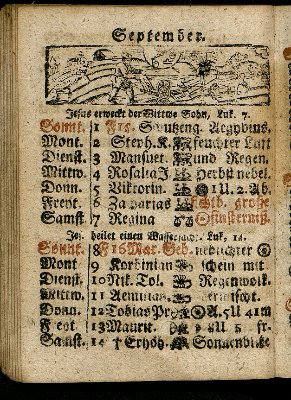 September.
Jesus erweckt der Wittwe Sohn, Luk. 7.
Sonnt. 1 F15. Schutzeng. Aegydius.
Mont. 2 Steph. K. feuchter Luft
Dienst. 3 Mansuet. und Regen,
Mittw. 4 Rosalia J. Herbstnebel.
Donn. 5 Viktorin. 1 U. 2. Ab.
Freyt. 6 Zacharias sichtb. große
Samst. 7 Regina finsterniß.
Jes. heilet einen Wassersücht. Luk. 14.
Sonnt. 8 F16 Mar. Geb. neblichter
Mont 9 Korbinian schein mit
Dienst. 10 Nik. Tol. Regenwolk.
Mittw. 11 Aemilian. vermischt.
Donn. 12 Tobias Pr. A. 5 U 41 m
Freyt 13 Maurit. U 5 fr.
Samst. 14 † Erhöh. Sonnenblicke